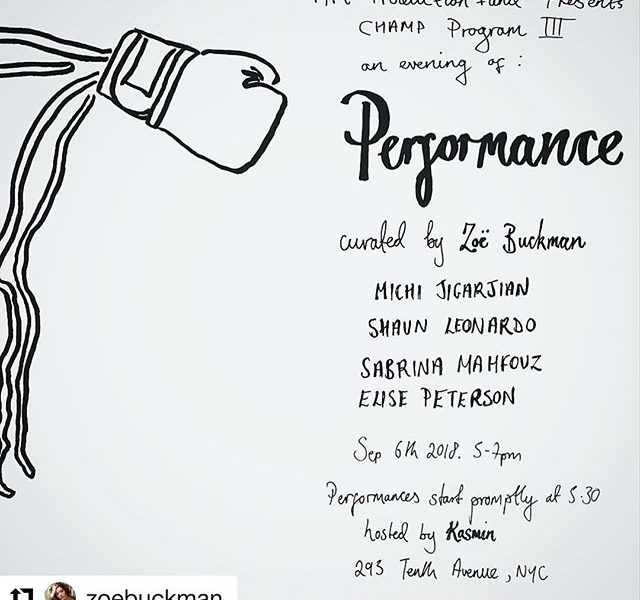 Production Fund Presents
CHAMP Program III
an evening of :
Performance
curated by Zoë Buckman
MICHI JIGARJIAN
SHAUN LEONARDO
SABRINA MAHFOUZ
ELISE PETERSON
Sep 6th 2018. 5-7pm
Performances start promptly at 5:30
hosted by Kasmin
293 Tenth Avenue, NYC
zoebuckman